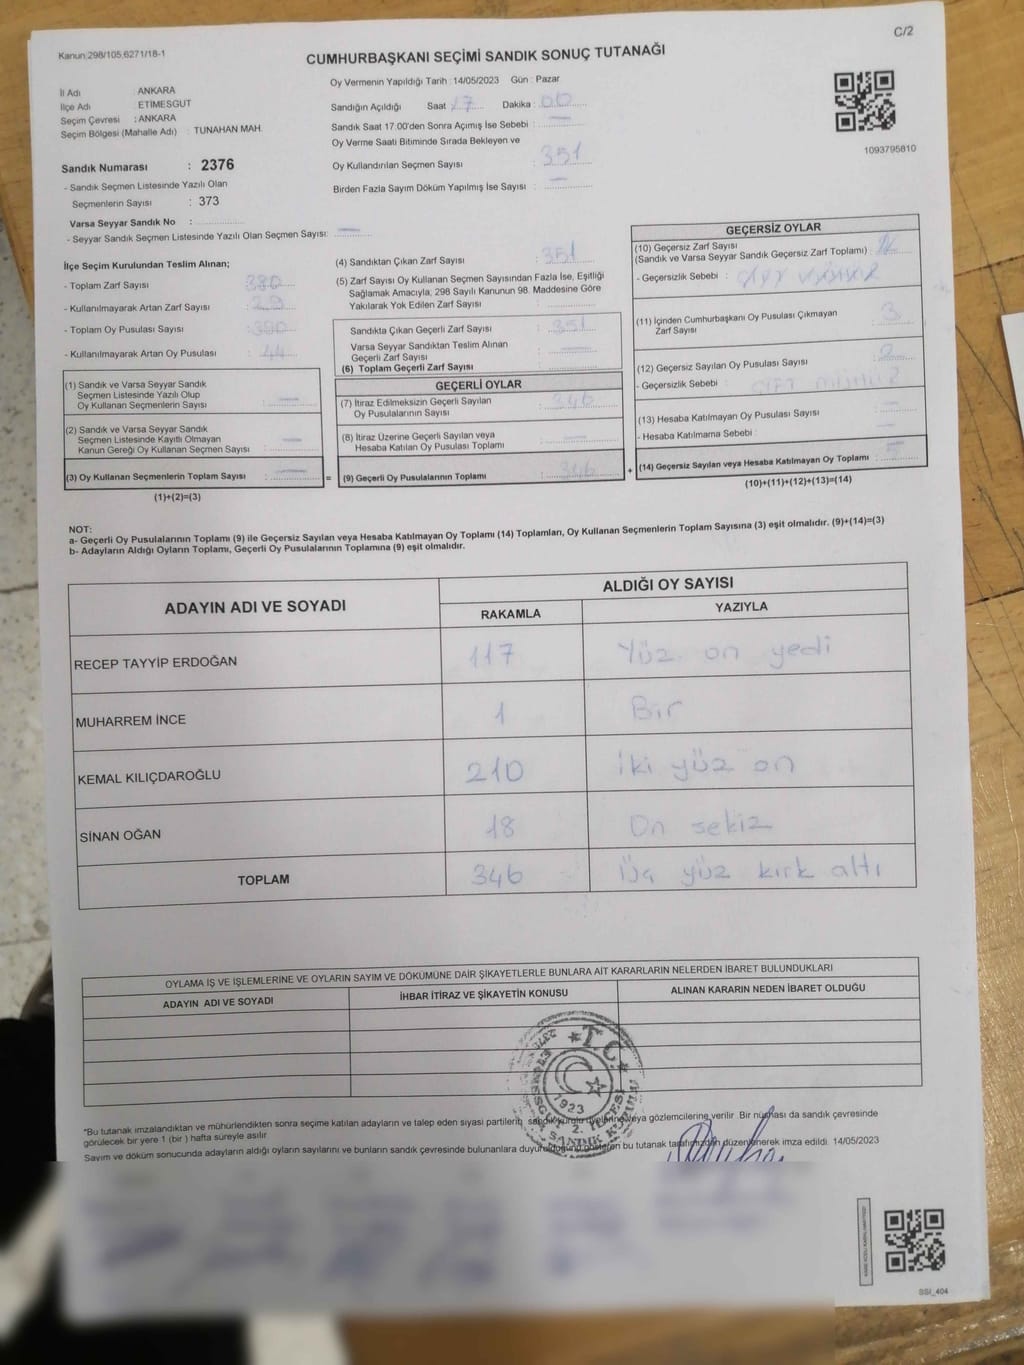 Kanun:298/105,6271/18-1
C/2
CUMHURBAŞKANI SEÇİMİ SANDIK SONUÇ TUTANAĞI
İl Adı : ANKARA
İlçe Adı : ETİMESGUT
Seçim Çevresi : ANKARA
Seçim Bölgesi (Mahalle Adı) : TUNAHAN MAH.
Sandık Numarası : 2376
- Sandık Seçmen Listesinde Yazılı Olan
Seçmenlerin Sayısı : 373
Varsa Seyyar Sandık No :
- Seyyar Sandık Seçmen Listesinde Yazılı Olan Seçmen Sayısı: —
Oy Vermenin Yapıldığı Tarih : 14/05/2023 Gün : Pazar
Sandığın Açıldığı Saat 17 Dakika : 00
Sandık Saat 17.00'den Sonra Açımış İse Sebebi : —
Oy Verme Saati Bitiminde Sırada Bekleyen ve
Oy Kullandırılan Seçmen Sayısı : 351
Birden Fazla Sayım Döküm Yapılmış İse Sayısı : —
1093795810
İlçe Seçim Kurulundan Teslim Alınan;
- Toplam Zarf Sayısı : 380
- Kullanılmayarak Artan Zarf Sayısı : 29
- Toplam Oy Pusulası Sayısı
- Kullanılmayarak Artan Oy Pusulası : 44
(1) Sandık ve Varsa Seyyar Sandık
Seçmen Listesinde Yazılı Olup
Oy Kullanan Seçmenlerin Sayısı : —
(2) Sandık ve Varsa Seyyar Sandık
Seçmen Listesinde Kayıtlı Olmayan
Kanun Gereği Oy Kullanan Seçmen Sayısı : —
(3) Oy Kullanan Seçmenlerin Toplam Sayısı : — =
(1)+(2)=(3)
(4) Sandıktan Çıkan Zarf Sayısı : 351
(5) Zarf Sayısı Oy Kullanan Seçmen Sayısından Fazla İse, Eşitliği
Sağlamak Amacıyla, 298 Sayılı Kanunun 98. Maddesine Göre
Yakılarak Yok Edilen Zarf Sayısı :
Sandıkta Çıkan Geçerli Zarf Sayısı : 351
Varsa Seyyar Sandıktan Teslim Alınan
Geçerli Zarf Sayısı : —
(6) Toplam Geçerli Zarf Sayısı
GEÇERLİ OYLAR
(7) İtiraz Edilmeksizin Geçerli Sayılan
Oy Pusulalarının Sayısı : 346
(8) İtiraz Üzerine Geçerli Sayılan veya
Hesaba Katılan Oy Pusulası Toplamı : —
(9) Geçerli Oy Pusulalarının Toplamı : 346 +
GEÇERSİZ OYLAR
(10) Geçersiz Zarf Sayısı
(Sandık ve Varsa Seyyar Sandık Geçersiz Zarf Toplamı) :
- Geçersizlik Sebebi :
(11) İçinden Cumhurbaşkanı Oy Pusulası Çıkmayan
Zarf Sayısı : 3
(12) Geçersiz Sayılan Oy Pusulası Sayısı : 2
- Geçersizlik Sebebi : ÇİFT MÜHÜR
(13) Hesaba Katılmayan Oy Pusulası Sayısı : —
- Hesaba Katılmama Sebebi : —
(14) Geçersiz Sayılan veya Hesaba Katılmayan Oy Toplamı : 5
(10)+(11)+(12)+(13)=(14)
NOT:
a- Geçerli Oy Pusulalarının Toplamı (9) ile Geçersiz Sayılan veya Hesaba Katılmayan Oy Toplamı (14) Toplamları, Oy Kullanan Seçmenlerin Toplam Sayısına (3) eşit olmalıdır. (9)+(14)=(3)
b- Adayların Aldığı Oyların Toplamı, Geçerli Oy Pusulalarının Toplamına (9) eşit olmalıdır.
ADAYIN ADI VE SOYADI
ALDIĞI OY SAYISI
RAKAMLA YAZIYLA
RECEP TAYYİP ERDOĞAN 117 Yüz on yedi
MUHARREM İNCE 1 Bir
KEMAL KILIÇDAROĞLU 210 iki yüz on
SİNAN OĞAN 18 On sekiz
TOPLAM 346 Üç yüz kırk altı
OYLAMA İŞ VE İŞLEMLERİNE VE OYLARIN SAYIM VE DÖKÜMÜNE DAİR ŞİKAYETLERLE BUNLARA AİT KARARLARIN NELERDEN İBARET BULUNDUKLARI
ADAYIN ADI VE SOYADI İHBAR İTİRAZ VE ŞİKAYETİN KONUSU ALINAN KARARIN NEDEN İBARET OLDUĞU
T.C.
1923
*Bu tutanak imzalandıktan ve mühürlendikten sonra seçime katılan adayların ve talep eden siyasi partilerin, sandık kurulu üyelerine veya gözlemcilerine verilir. Bir nüshası da sandık çevresinde
görülecek bir yere 1 (bir ) hafta süreyle asılır
Sayım ve döküm sonucunda adayların aldığı oyların sayılarını ve bunların sandık çevresinde bulunanlara duyurulduğunu gösteren bu tutanak tarafımızdan düzenlenerek imza edildi. 14/05/2023
SSI_404